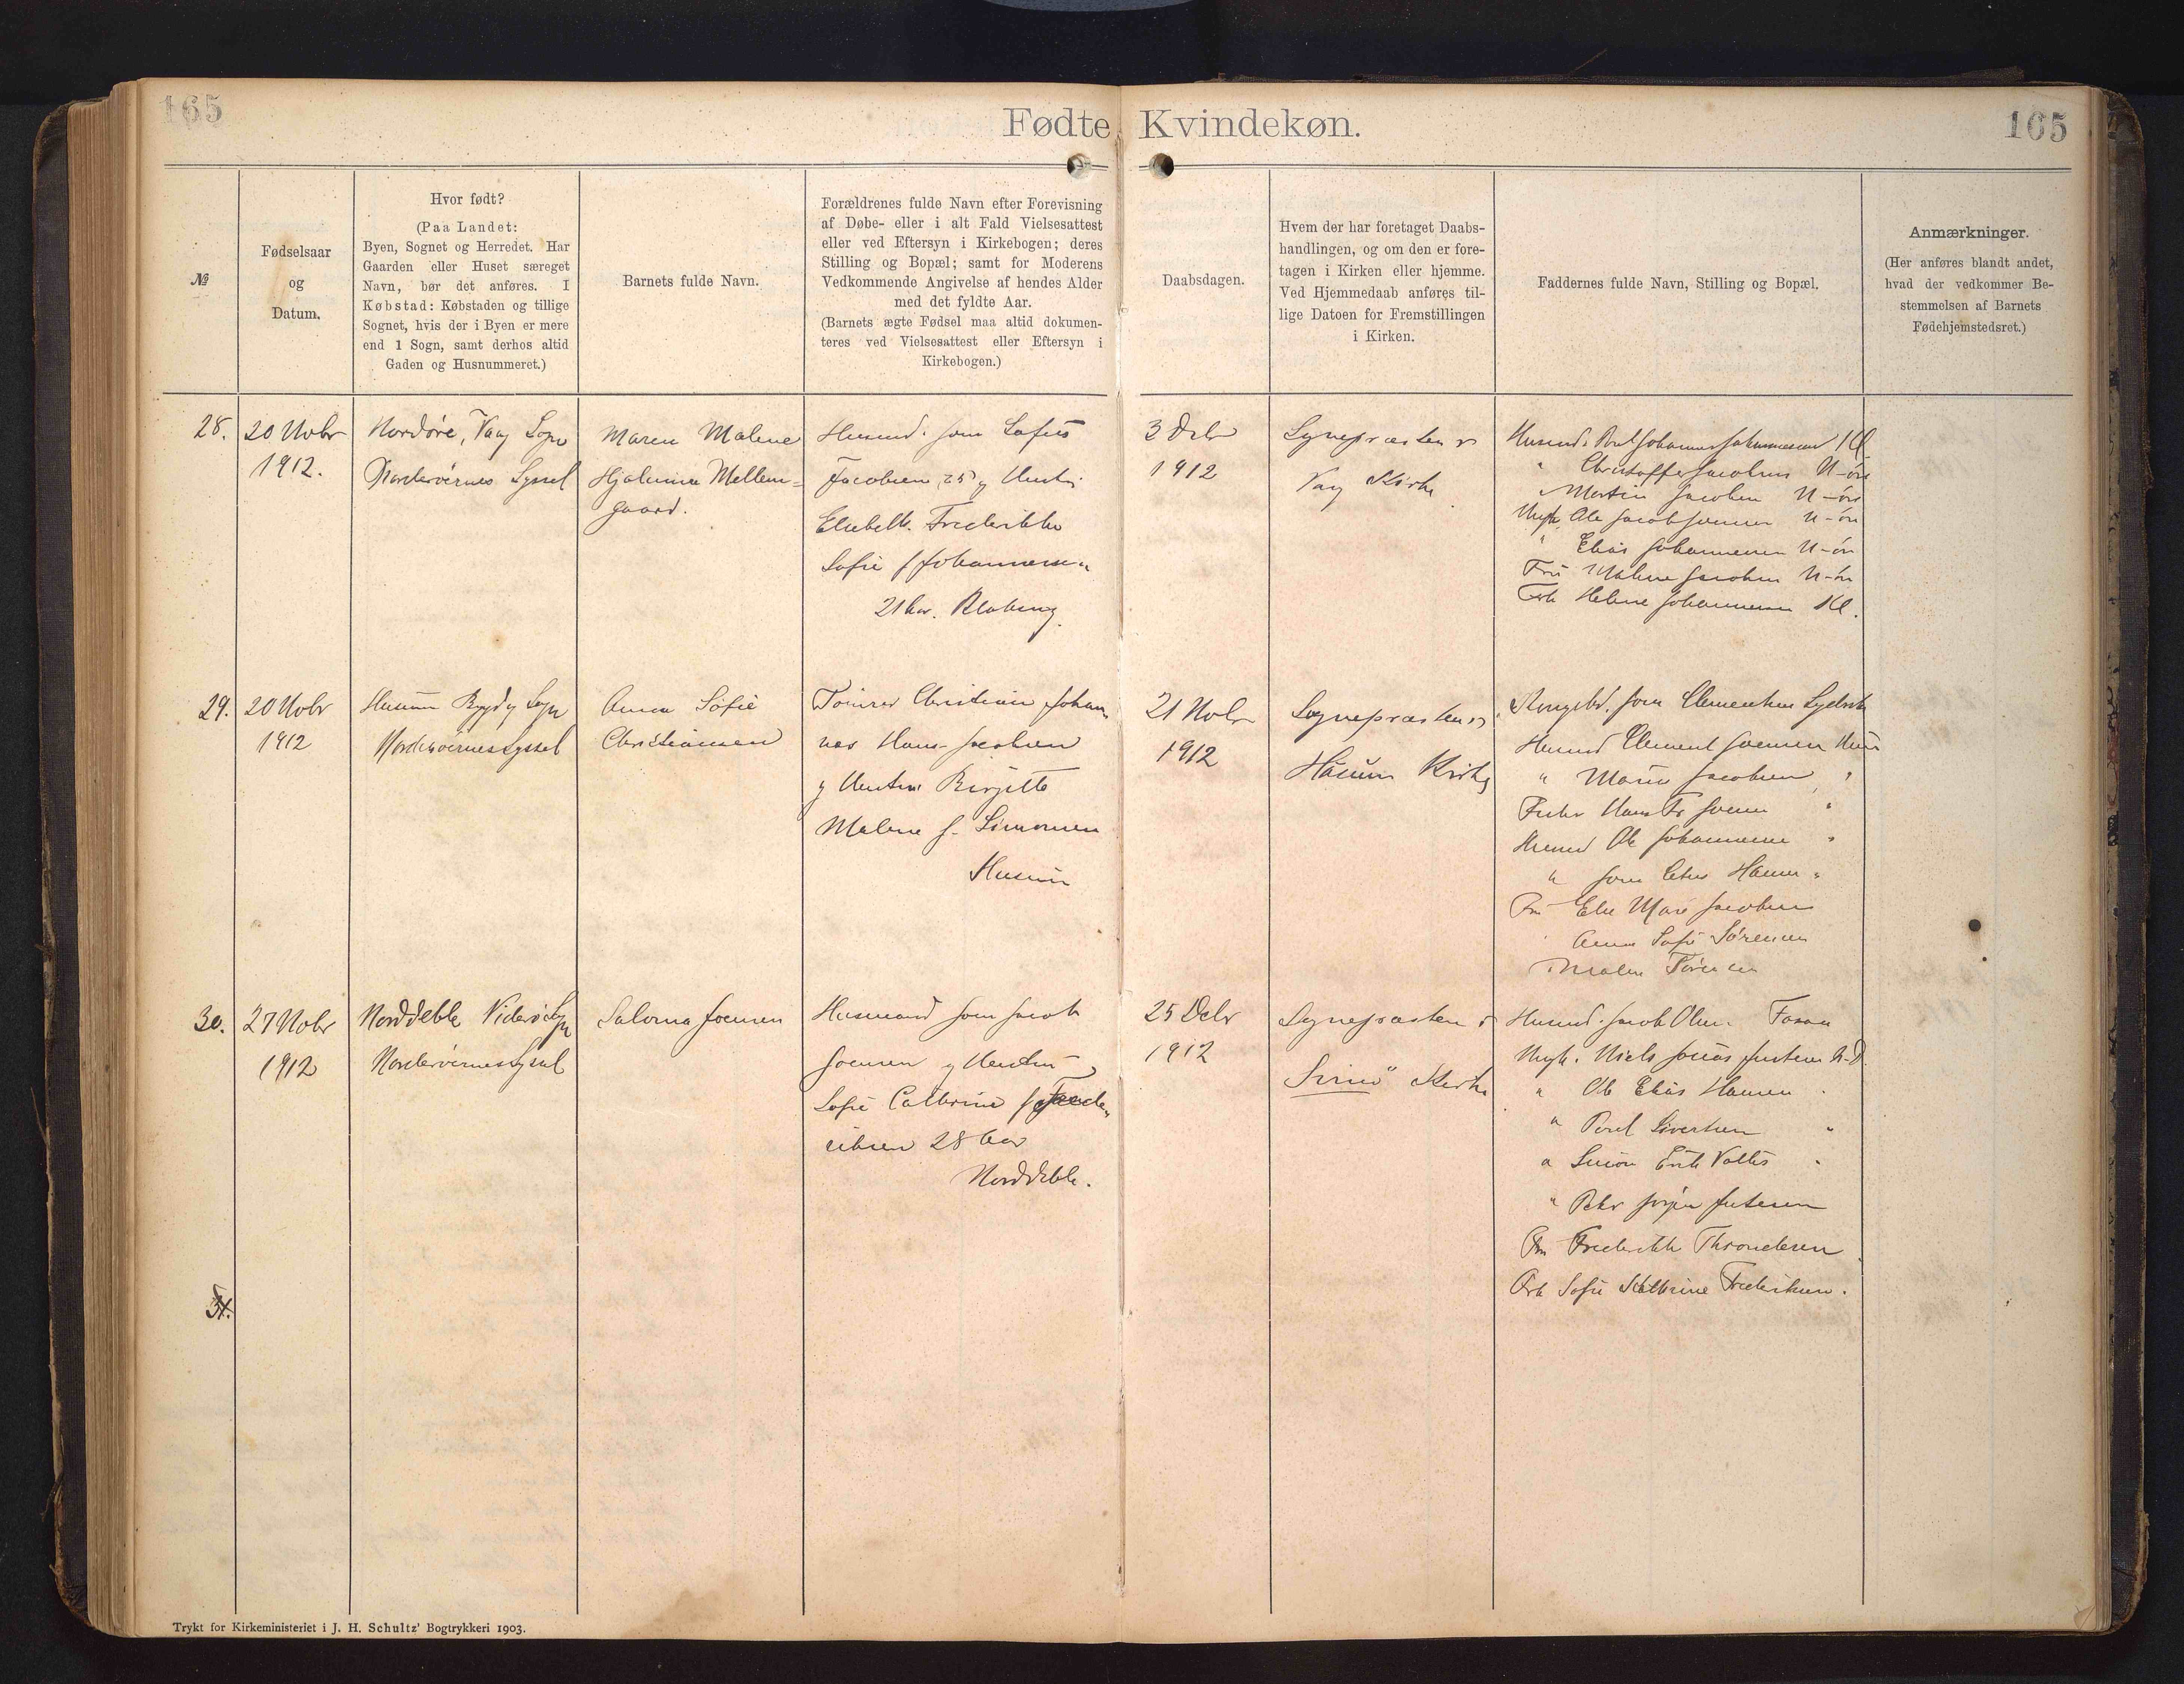 165
Fødte Kvindekøn.
165
№
Fødselsaar
og
Datum.
Hvor født?
(Paa Landet:
Byen, Sognet og Herredet. Har
Gaarden eller Huset særeget
Navn, bør det anføres. I
Købstad: Købstaden og tillige
Sognet, hvis der i Byen er mere
end 1 Sogn, samt derhos altid
Gaden og Husnummeret.)
Barnets fulde Navn.
Forældrenes fulde Navn efter Forevisning
af Døbe- eller i alt Fald Vielsesattest
eller ved Eftersyn i Kirkebogen; deres
Stilling og Bopæl; samt for Moderens
Vedkommende Angivelse af hendes Alder
med det fyldte Aar.
(Barnets ægte Fødsel maa altid dokumen-
teres ved Vielsesattest eller Eftersyn i
Kirkebogen.)
Daabsdagen.
Hvem der har foretaget Daabs-
handlingen, og om den er fore-
tagen i Kirken eller hjemme.
Ved Hjemmedaab anføres til-
lige Datoen for Fremstillingen
i Kirken.
Faddernes fulde Navn, Stilling og Bopæl.
Anmærkninger.
(Her anføres blandt andet,
hvad der vedkommer Be-
stemmelsen af Barnets
Fødehjemstedsret.)
28.
20 Nobr
1912.
Nordøre, Vaag Sogn
Norderøernes Syssel
Maren Malene
Hjalmina Mellem=
gaard.
Husmd. Joen Lofus
Jacobsen, 25 og Hustru
Elisabeth Frederikke
Sofie f Johannesen
21 Aar.
3 Debr
1912
Sognepræsten i
Vaag Kirke
Husmd. Poul Johannes Johannesen Kl
" Christoffer Jacobsen N-øre
Martin Jacobsen N-øre
Ungk. Ole Jacob Joensen N-øre
" Elias Johannesen N-øre
Fru Malene Jacobsen N-øre
Helene Johannesen Kl.
29.
20 Nobr
1912
Husum Bygd og Sogn
Norderøernes Syssel
Anna Sofie
Christiansen
Tømrer Christian Johan
nes Hans Jacobsen
og Hustru Birgitte
Malene f. Simonsen
Husum
21 Nobr
1912
Sognepræsten i
Husum Kirke
Kongsbd. Joen Clementsen
Husmd Clement Joensen
" Jacobsen "
Husmd Ole Johannesen "
" Joen "
Fru Else Marie Jacobsen
Anna Sofie Sørensen
Malene
30.
27 Nobr
1912
Norddeble Viderø Sogn
Norderøernes Syssel
Saloma Joensen
Husmand Joen Jacob
Joensen og Hustru
Sofie Cathrine f Frede
riksen 28 Aar
Norddeble.
25 Debr
1912
Sognepræsten i
Svinø Kirke
Husmd. Jacob Olsen
Ungk. Niels Jonas Justesen N-D
" Ole Elias Hansen "
" Poul Sivertsen "
" Simon Erik "
" Peter Jørgen Justesen
Fru Frederikke Throndesen
Sofie Kathrine Frederiksen.
31.
Trykt for Kirkeministeriet i J. H. Schultz' Bogtrykkeri 1903.